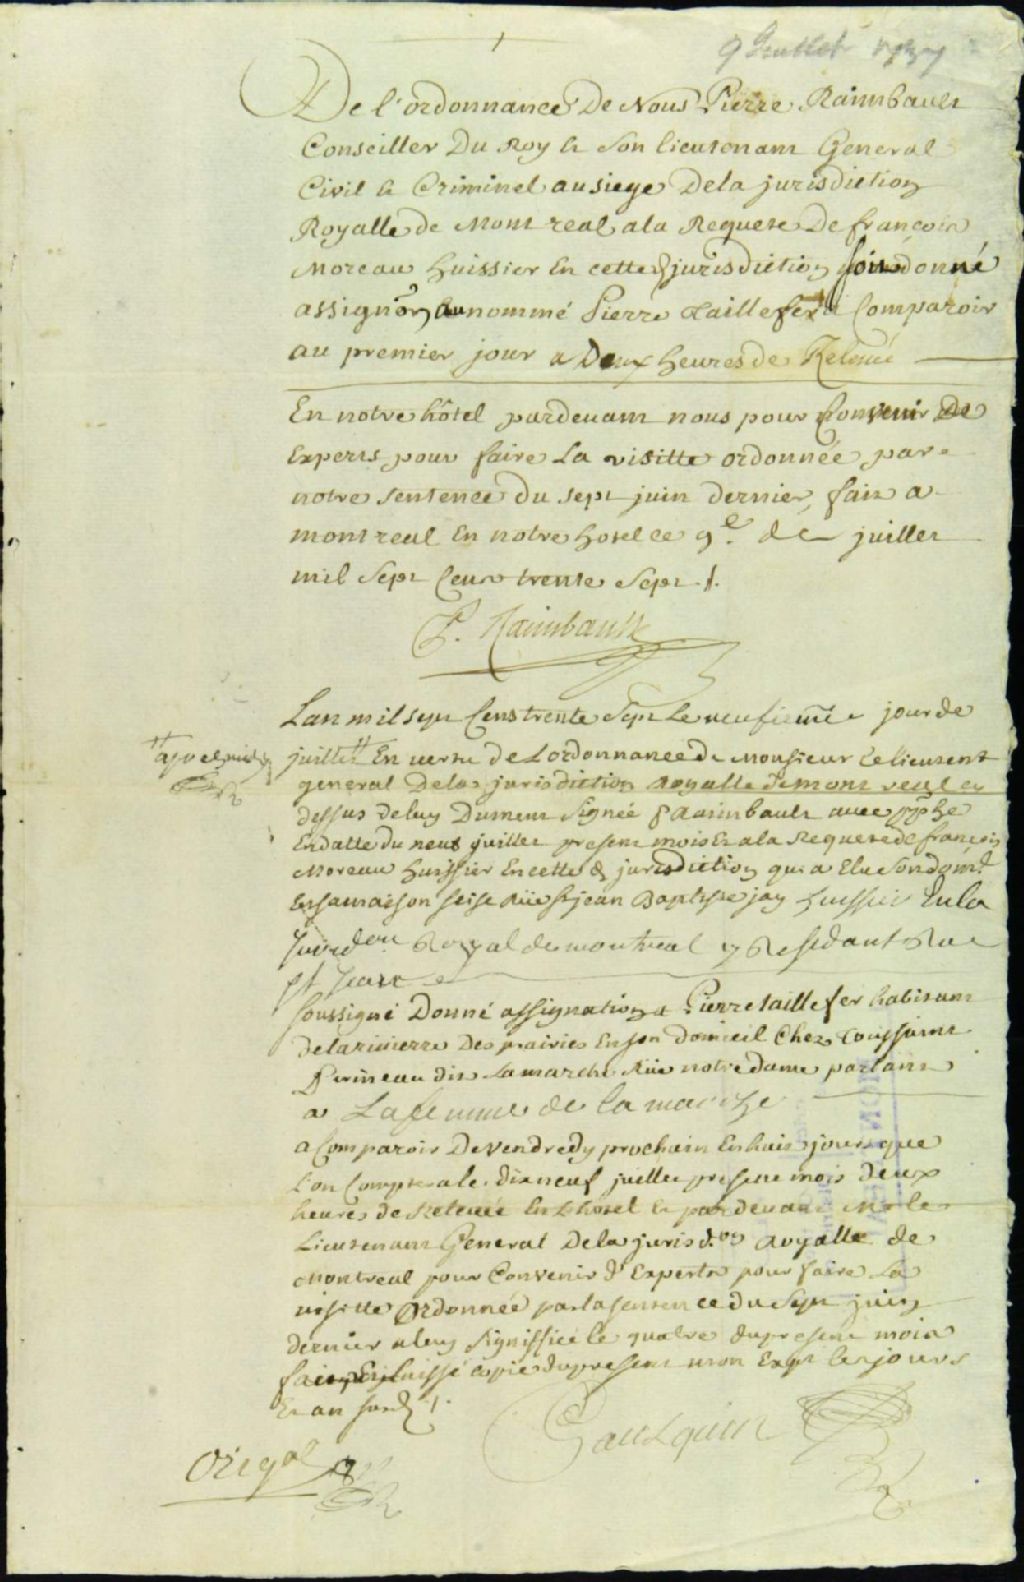 9 Juillet 1737
De l'ordonnance De Nous Pierre Raimbault
Conseiller Du Roy & Son lieutenant General
Civil & Criminel au siege Dela jurisdiction
Royalle de Montreal ala Requete De francois
Moreau huissier En cette d jurisdiction soit donné
assignon au nommé Pierre Taillefer a Comparoir
au premier jour a Deux heures de Relevé
En notre hôtel pardevant nous pour Convenir De
Experts pour faire La visitte ordonnée par
notre sentence Du sept juin dernier, fait a
montreal En notre hostel ce 9e. de juillet
mil sept Cent trente Sept /.
P. Raimbault
Lan mil sept Cens trente Sept Le neufieme jour de
juillet # En vertu de Lordonnance de Monsieur Le lieutent
# apres midy
general Dela jurisdiction Royalle de montreal cy
dessus deluy Dument Signée P Raimbault avec pphe
Endatte du neuf juillet present mois Et ala Requete de francois
Moreau huissier En cette d jurisdiction qui a Elu Son domle
En sa maison scise Rüe St jean Baptiste jay huissier En la
Jurisdon Royal de montreal y Residant Rue
St
soussigné Donné assignation a Pierre taillefer habitant
de la riviere Des prairies En son domicil Chez Toussaint
Perineau dit Lamarche Rüe notre dame parlant
a La femme de la marche
a Comparoir De vendredy prochain En huit jours que
L'on Comptera le dixneuf juillet present mois deux
heures de Relevée En Lhotel & par devant Mr le
Lieutenant General Dela jurisd.on Royalle de
Montreal pour Convenir d'Experts pour faire La
visitte Ordonnée par la sentence du Sept juin
dernier a luy Signiffiée le quatre du present mois
fait Et laissé copie du present mon Expt les jours
Et an susd /.
Origal